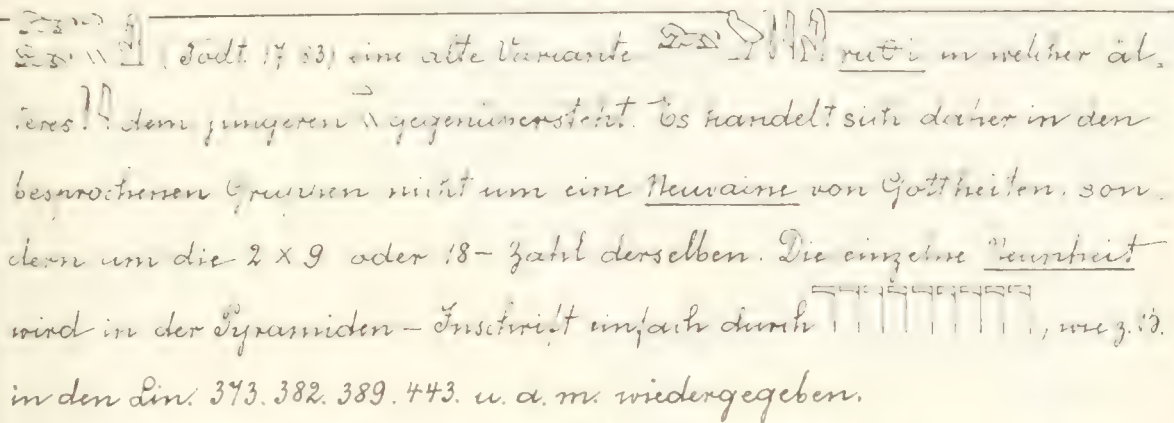 (Todt. 17, 53) eine alte Variante ruti in welcher äl-
teres dem jüngeren gegenübersteht. Es handelt sich daher in den
besprochenen Gruppen nicht um eine Neuvaine von Gottheiten, son-
dern um die 2 × 9 oder 18-Zahl derselben. Die einzelne Neunheit
wird in der Pyramiden-Inschrift einfach durch 𓊹𓊹𓊹𓊹𓊹𓊹𓊹𓊹𓊹, wie z. B.
in den Lin. 373. 382. 389. 443. u. a. m. wiedergegeben.